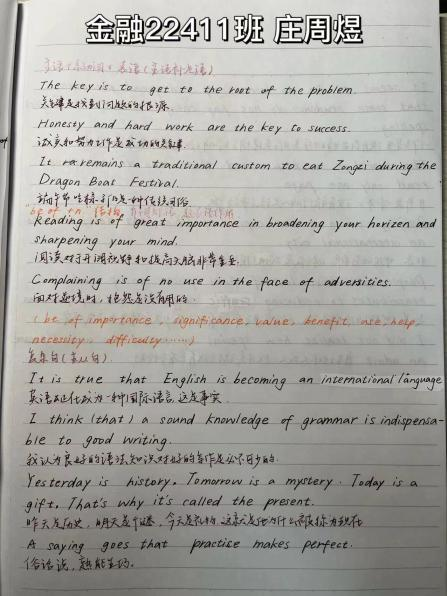 金融22411班 庄周煜
主语+系动词+表语(主语补足语)
The key is to get to the root of the problem.
关键是找到问题的根源.
Honesty and hard work are the key to success.
诚实和努力工作是成功的关键.
It remains a traditional custom to eat Zongzi during the
Dragon Boat Festival.
端午节吃粽子仍是一种传统习俗.
be of +n 结构
Reading is of great importance in broadening your horizen and
sharpening your mind.
阅读对于开阔视野和提高头脑非常重要.
Complaining is of no use in the face of adversities.
面对逆境时，抱怨是没有用的.
(be of importance, significance, value, benefit, use, help,
necessity, difficulty ......)
表录句(表从句)
It is true that English is becoming an international language
英语正在成为一种国际语言,这是事实.
I think (that) a sound knowledge of grammar is indispensa-
ble to good writing.
我认为良好的语法知识对好的写作是必不可少的.
Yesterday is history. Tomorrow is a mystery. Today is a
gift. That's why it's called the present.
昨天是历史,明天是个谜,今天是礼物.这就是它为什么被称为现在
A saying goes that practise makes perfect.
俗话说,熟能生巧.